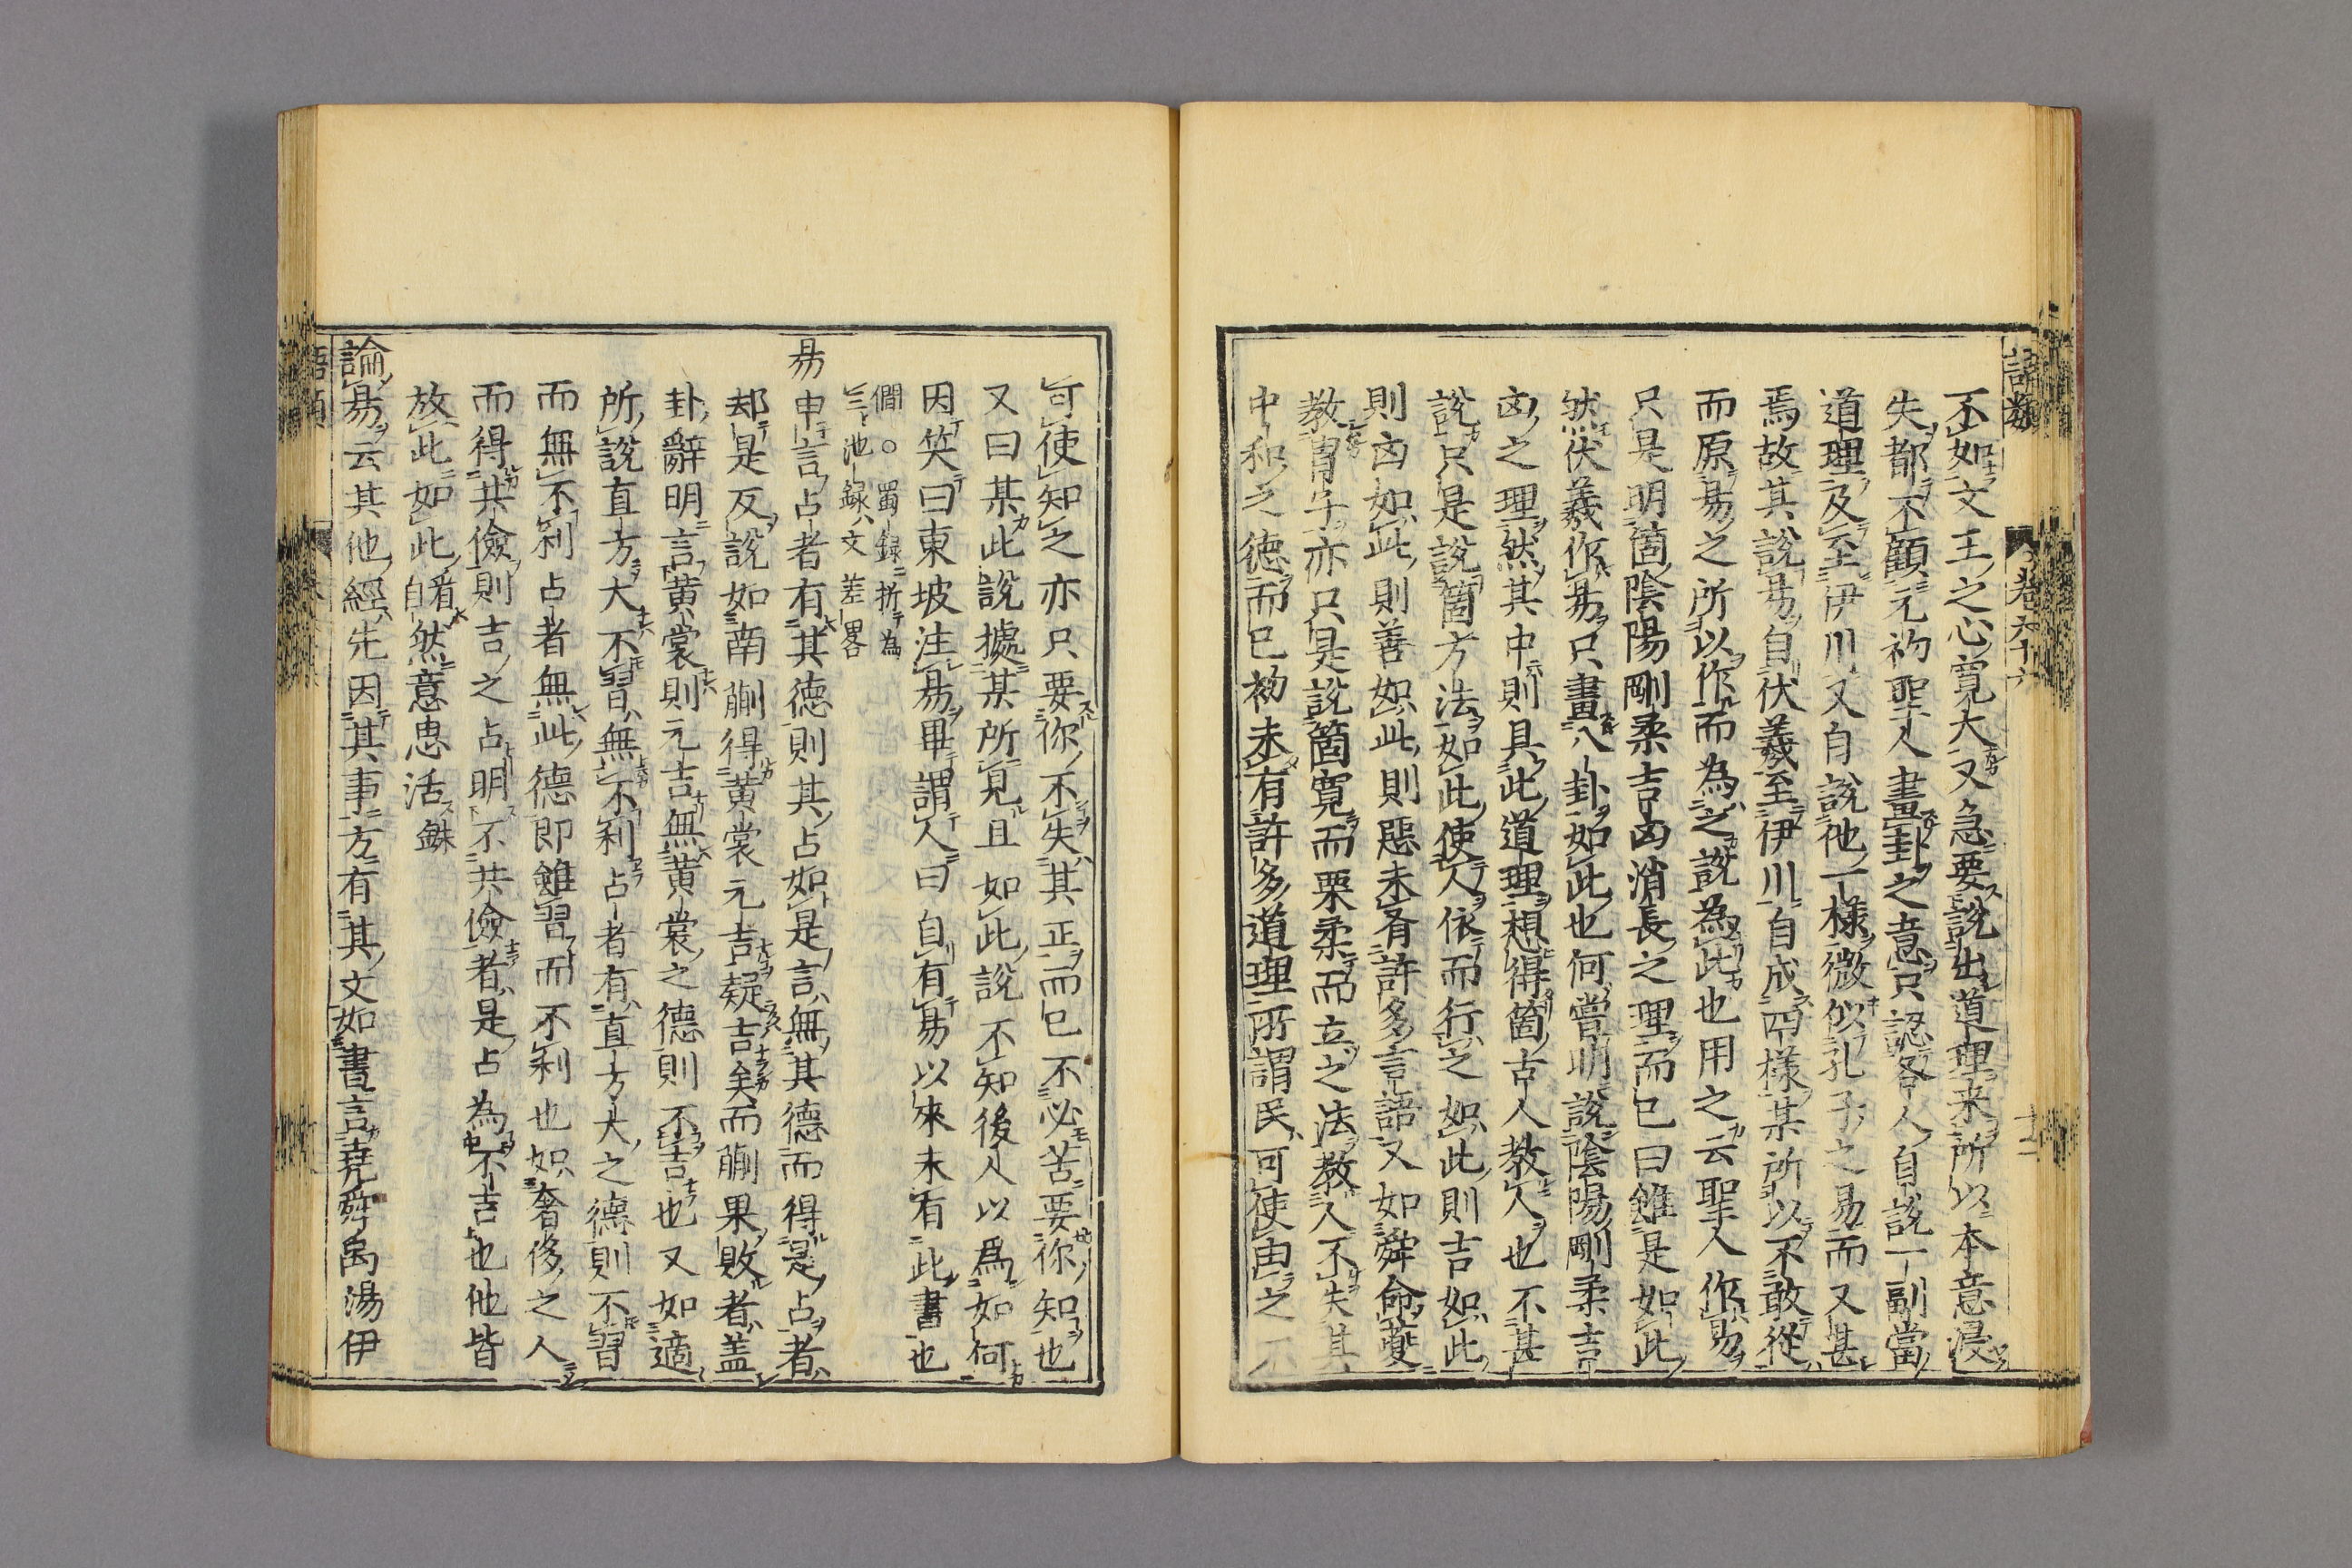 語類 卷六十六 十二
不如文王之心寬大又急要說出道理来所以本意浸
失都不顧元初聖人畫卦之意只認各人自說一副當
道理及至伊川又自說他一樣微似孔子之易而又甚
焉故其說易自伏羲至伊川自成四樣某所以不敢從
而原易之所以作而為之說為此也用之云聖人作易
只是明箇陰陽剛柔吉凶消長之理而已曰雖是如此
然伏羲作易只畫八卦如此也何嘗明說陰陽剛柔吉
凶之理然其中則具此道理想得箇古人教人也不甚
說只是說箇方法如此使人依而行之如此則吉如此
則凶如此則善如此則惡未有許多言語又如舜命夔
教冑子亦只是說箇寬而栗柔而立之法教人不失其
中和之德而已初未有許多道理所謂民可使由之不
可使知之亦只要你不失其正而已不必苦要你知也
又曰某此說據某所見且如此說不知後人以爲如何
因笑曰東坡注易畢謂人曰自有易以來未有此書也
僩○蜀録折為
三池録文差畧
易中言占者有其德則其占如是言無其德而得是占者
却是反說如南蒯得黃裳元吉疑吉矣而蒯果敗者盖
卦辭明言黃裳則元吉無黃裳之德則不吉也又如適
所說直方大不習無不利占者有直方大之德則不習
而無不利占者無此德即雖習而不利也如奢侈之人
而得共儉則吉之占明不共儉者是占為不吉也他皆
放此如此看自然意思活銖
論易云其他經先因其事方有其文如書言堯舜禹湯伊